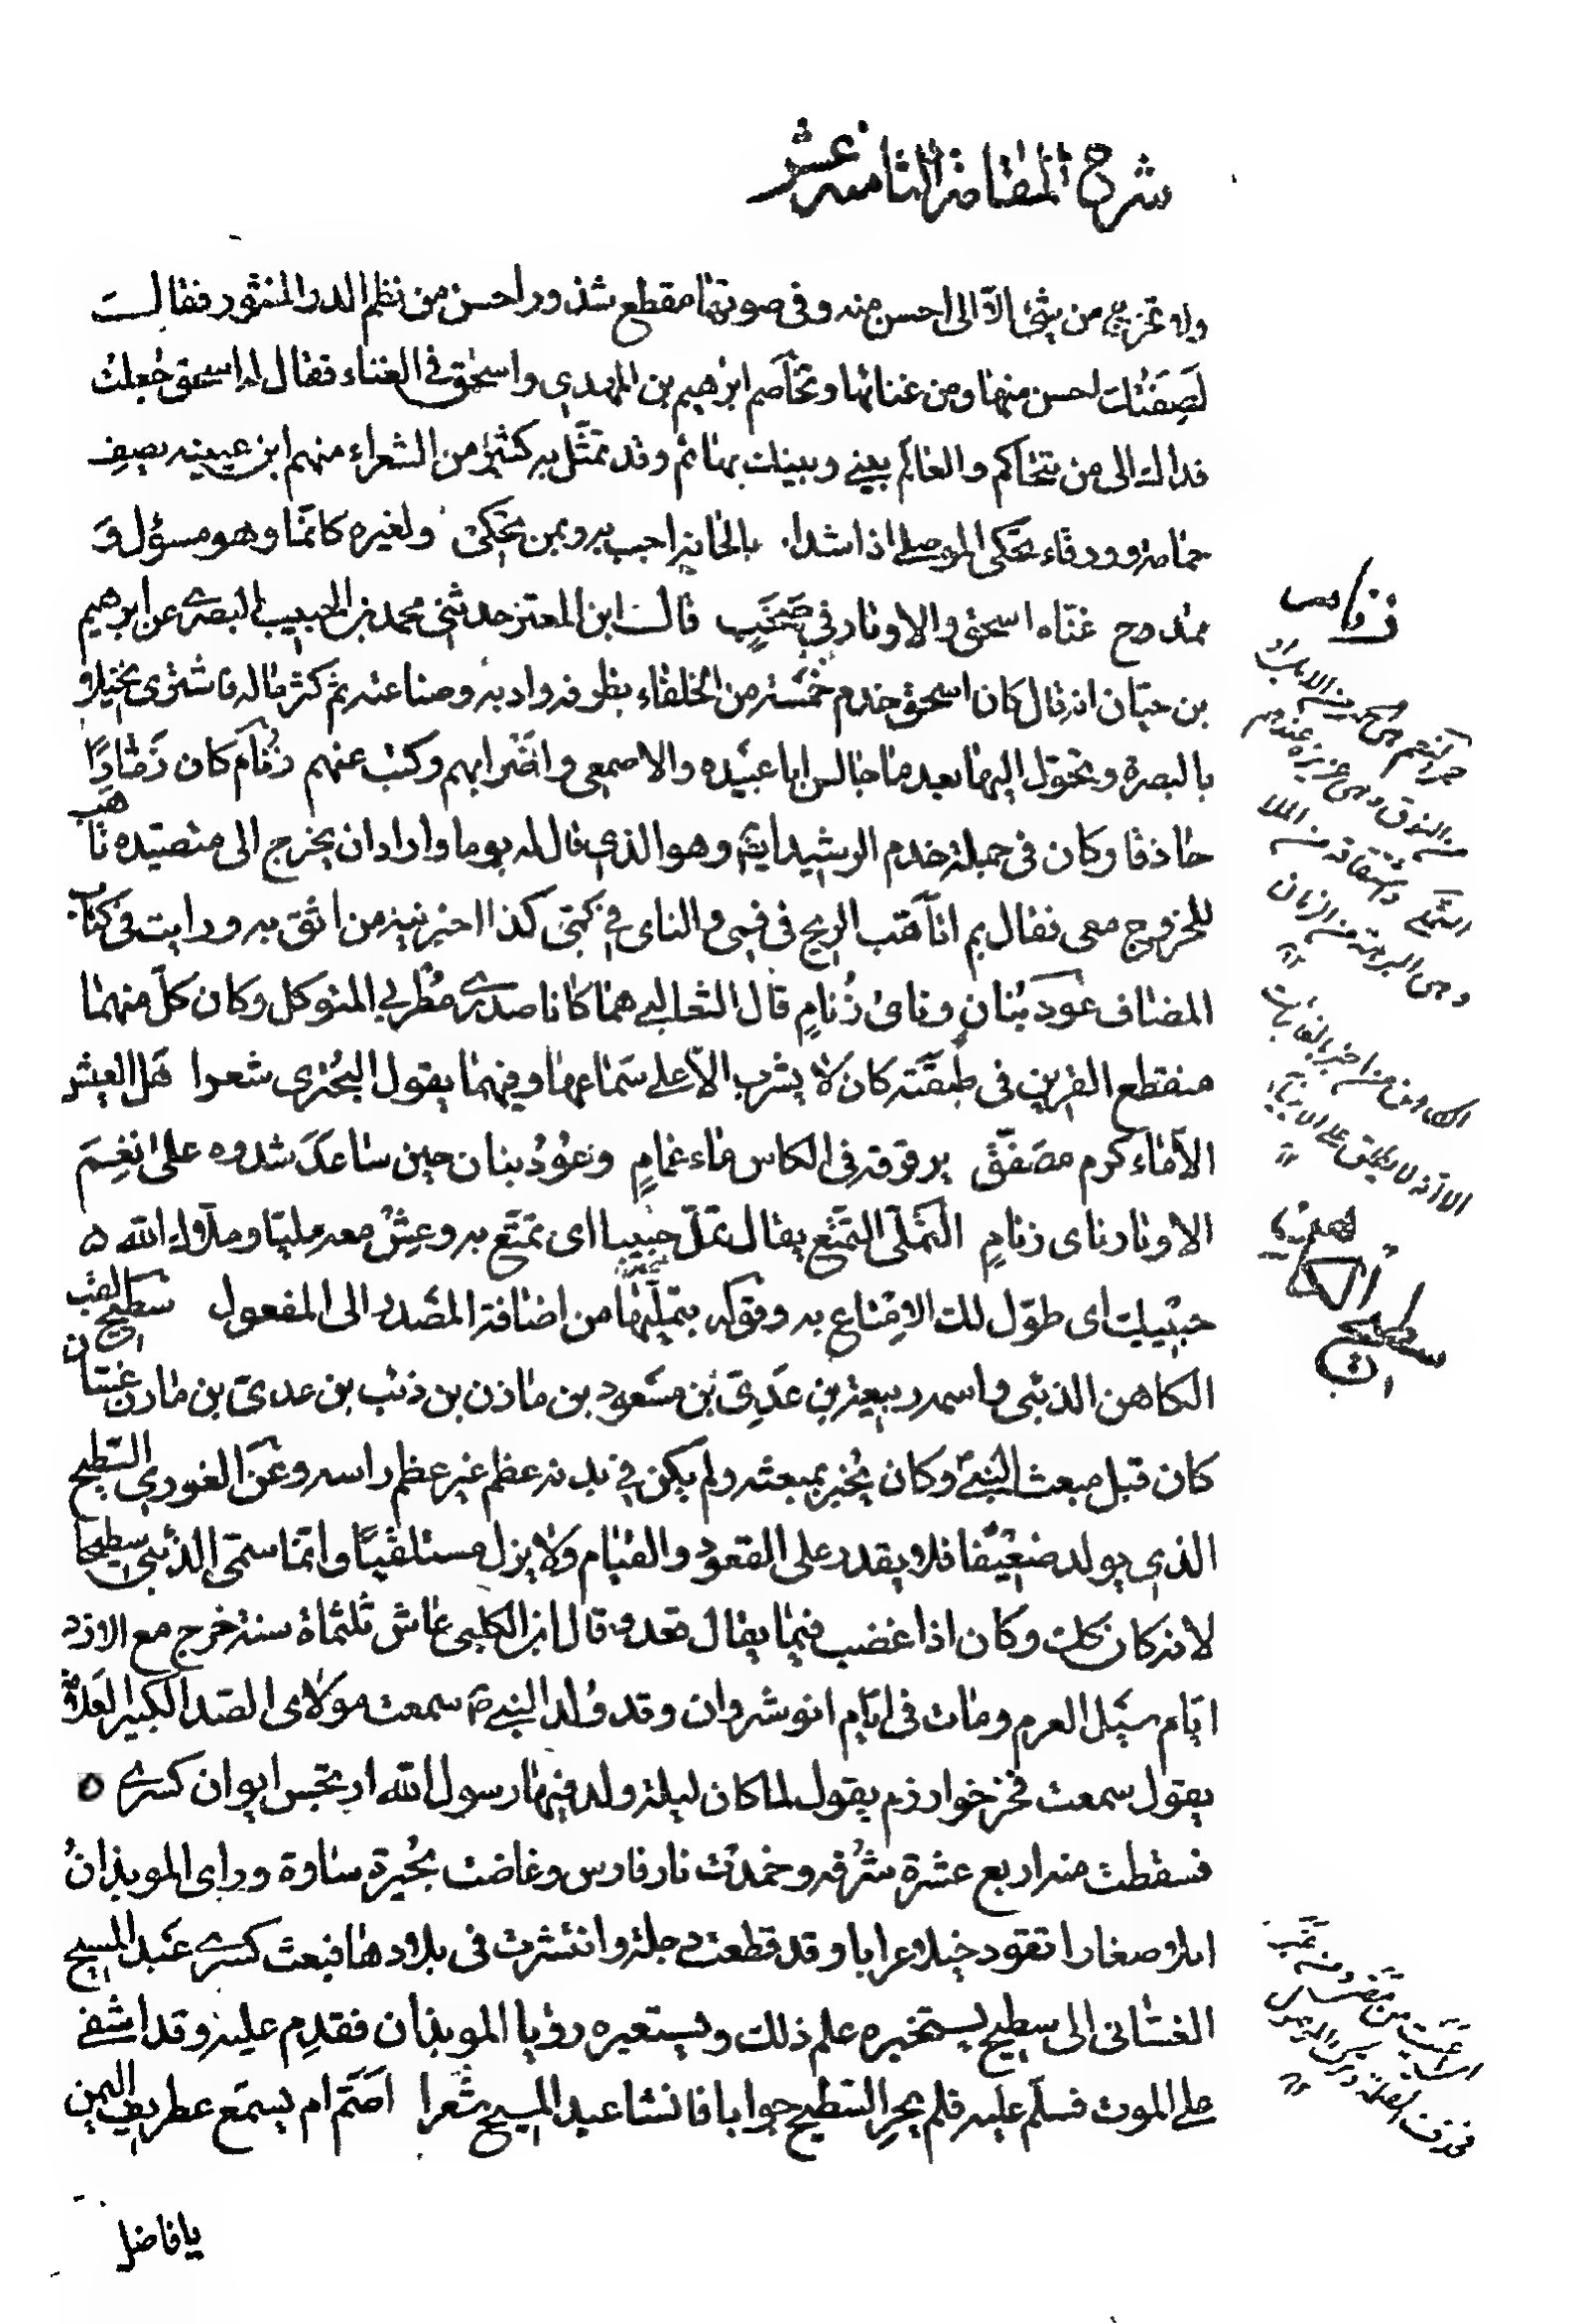 شرح المقامة الثامنة عشر
ولا تخرج من شئ الا الى احسن منه وفى صوتها مقطع شذور احسن من نظم الدر المنثور فقالت
لصفتك احسن منها ومن غنائها وتخاصم ابرهيم بن المهدي واسحق في الغناء فقال له اسحق جعلت
فداك الى من نتحاكم والعالم بيني وبينك بهائم وقد تمثّل به كثير من الشعراء منهم ابن عيينه يصف
حمامة وورقاء تحكى الموصلي اذا شدا بالحانه احبب به وبمن تحكى ولغيره كانما وهو مسؤل و
ممدوح غنّاه اسحق والاوتار في صخب قالـ ابن المعتز حدثنى محمد بن الحبيب البصرى عن ابرهيم
بن حبان انه قال كان اسحق خدم خمسة من الخلفاء بظرفه وادبه وصناعته ثم كثر ماله فاشترى نخيلا
بالبصرة وتحول اليها بعد ما جالس ابا عبيده والاصمعى واضرابهم وكتب عنهم زنام كان زمّارا
حاذقا وكان فى جملة خدم الرشيد ايضا وهو الذي قال له يوما واراد ان يخرج الى متصيده تأهب
للخروج معى فقال بم اتأهب الريح فى فمى والناى في كمّى كذا اخبرنيه من اثق به ورايت في كتاب
المضاف عود بُنان وناى زُنام قال الثعالبى هما كانا صدرى مُطربى المتوكل وكان كل منهما
منقطع القرين فى طبقته كان لا يشرب الا على سماعهما وفيهما يقول البحترى شعرا هل العيش
الا ماء كرم مصفق يرقرقه فى الكاس ماء غمام وعود بنان حين ساعد شدوه على نغم
الاوتار ناى زنام التملّى التمتع يقال تملّ حبيبا اى تمتع به وعش معه مليا وملاك الله
حبيبك اى طوّل لك الامتاع به وقوله بتملّيها من اضافة المصدر الى المفعول سطيح لقب
الكاهن الذئبى واسمه ربيعة بن عدى بن مسعود بن مازن بن ذئب بن عدى بن مازن غسّان
كان قبل مبعث النبى وكان يخبر بمبعثه ولم يكن في بدنه عظم غير عظم راسه وعن الغوري السطيح
الذي يولد ضعيفا فلا يقدر على القعود والقيام ولا يزل مستلقيا وانما سمى الذئبى سطيحا
لانه كان كذلك وكان اذا غضب فيما يقال قعد قال ابن الكلبى عاش ثلثمأة سنة خرج مع الازد
ايام سيل العرم ومات فى ايام انوشروان وقد ولد النبى ص سمعت مولاى الصدر الكبير العلامة
يقول سمعت فخر خوارزم يقول لما كان ليلة ولد فيها رسول الله ارتجس ايوان كسرى
فسقطت منه اربع عشرة شرفه وخمدت نار فارس وغاضت بحيرة ساوة وراى الموبذان
ابلا صغارا تقود خيلا عرابا وقد قطعت دجلة وانتشرت فى بلادها فبعث كسرى عبد المسيح
الغسّانى الى سطيح يستخبره علم ذلك ويستعبره رؤيا الموبذان فقدم عليه وقد اشفى
على الموت فسلّم عليه فلم يحر السطيح جوابا فانشا عبد المسيح شعرا اصمّ ام يسمع غطريف اليمن
يا فاضل